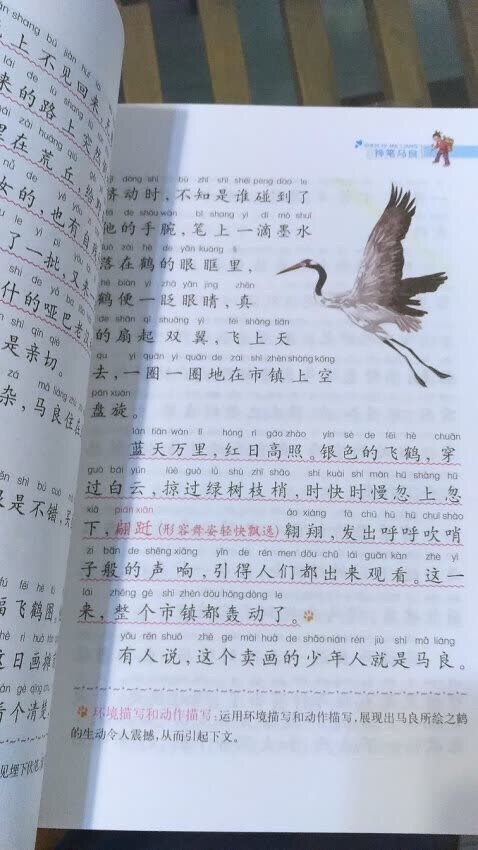 上不见回来
来的路上突
在荒丘
女的,也有
了一批,又
什的哑巴老
是亲切。
杂,马良住在
是不错,
福飞鹤图,
这日画摊
看个清楚
见埋下伏笔
神笔马良
dòng shí bù zhī shì shéi pèng dào le
挤动时,不知是谁碰到了
de shǒu wàn bǐ shang yì dī mò shuǐ
他的手腕,笔上一滴墨水
luò zài hè de yǎn kuàng lǐ
落在鹤的眼眶里,
hè biàn yì zhǎ yǎn jing zhēn
鹤便一眨眼睛,真
de shān qǐ shuāng yì fēi shàng tiān
的扇起双翼,飞上天
qù yì quān yì quān de zài shì zhèn shàng kōng
去,一圈一圈地在市镇上空
pán xuán
盘旋。
lán tiān wàn lǐ hóng rì gāo zhào yín sè de fēi hè chuān
蓝天万里,红日高照。银色的飞鹤,穿
guò bái yún lüè guò lǜ shù zhī shāo shí kuài shí màn hū shàng hū
过白云,掠过绿树枝梢,时快时慢忽上忽
xià pián xiān áo xiáng fā chū hū hū chuī shào
下,翩跹(形容舞姿轻快飘逸)翱翔,发出呼呼吹哨
zi bān de shēng xiǎng yǐn de rén men dōu chū lái guān kàn zhè yì
子般的声响,引得人们都出来观看。这一
lái zhěng gè shì zhèn dōu hōng dòng le
来,整个市镇都轰动了。
yǒu rén shuō zhè ge mài huà de shào nián rén jiù shì mǎ liáng
有人说,这个卖画的少年人就是马良。
环境描写和动作描写:运用环境描写和动作描写,展现出马良所绘之鹤
的生动令人震撼,从而引起下文。